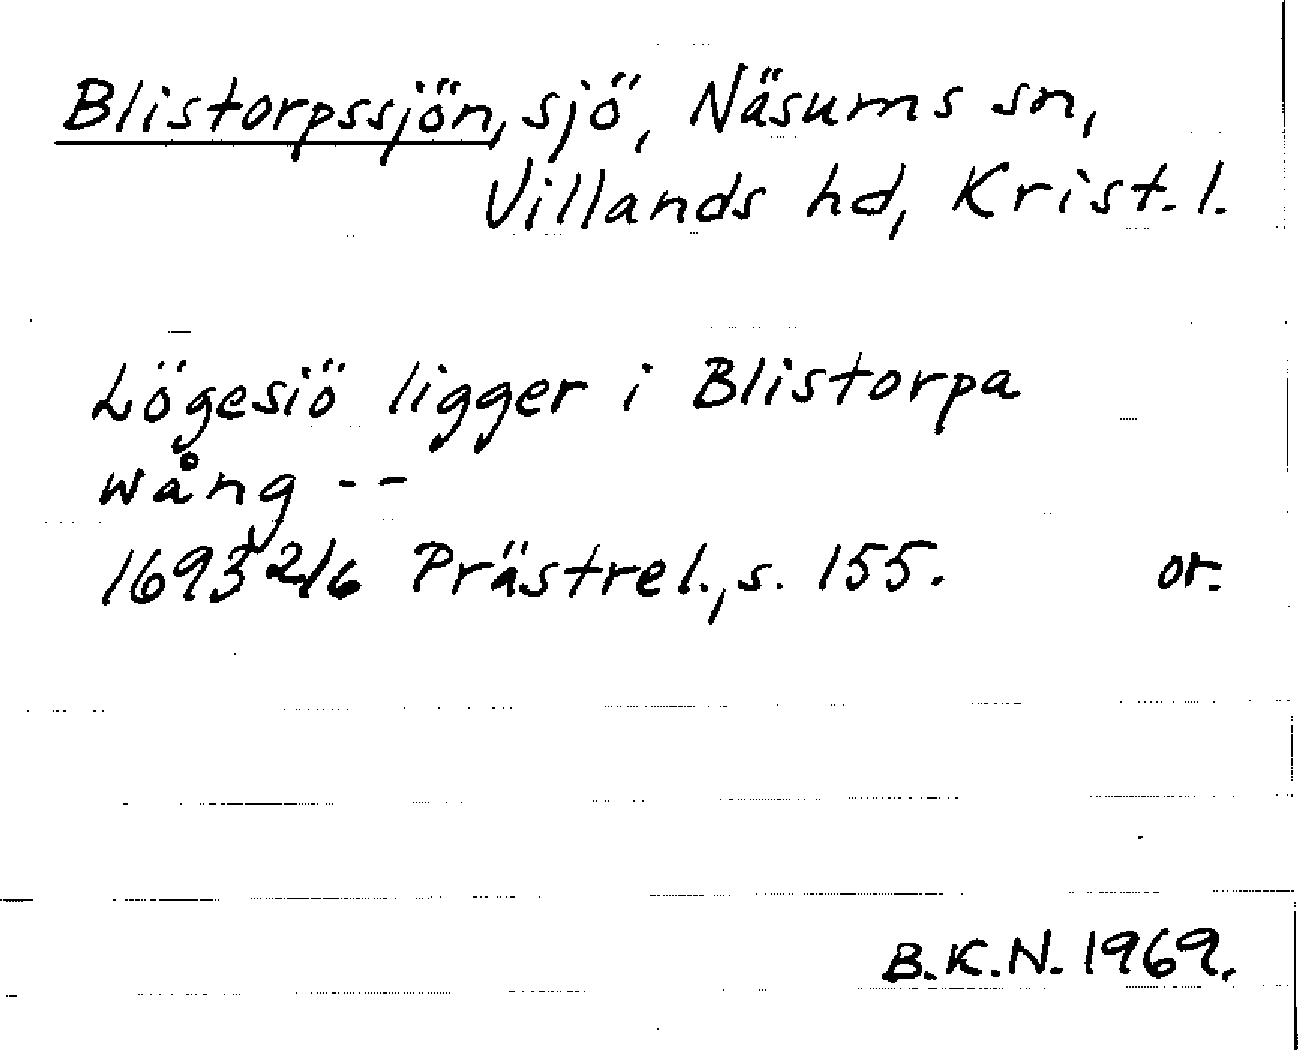 Blistorpssjön, sjö, Näsums sn,
Villands hd, Krist. l.
Lögesiö ligger i Blistorpa
wång --
1693 2/6 Prästrel., s. 155. or.
B.K.N. 1969.